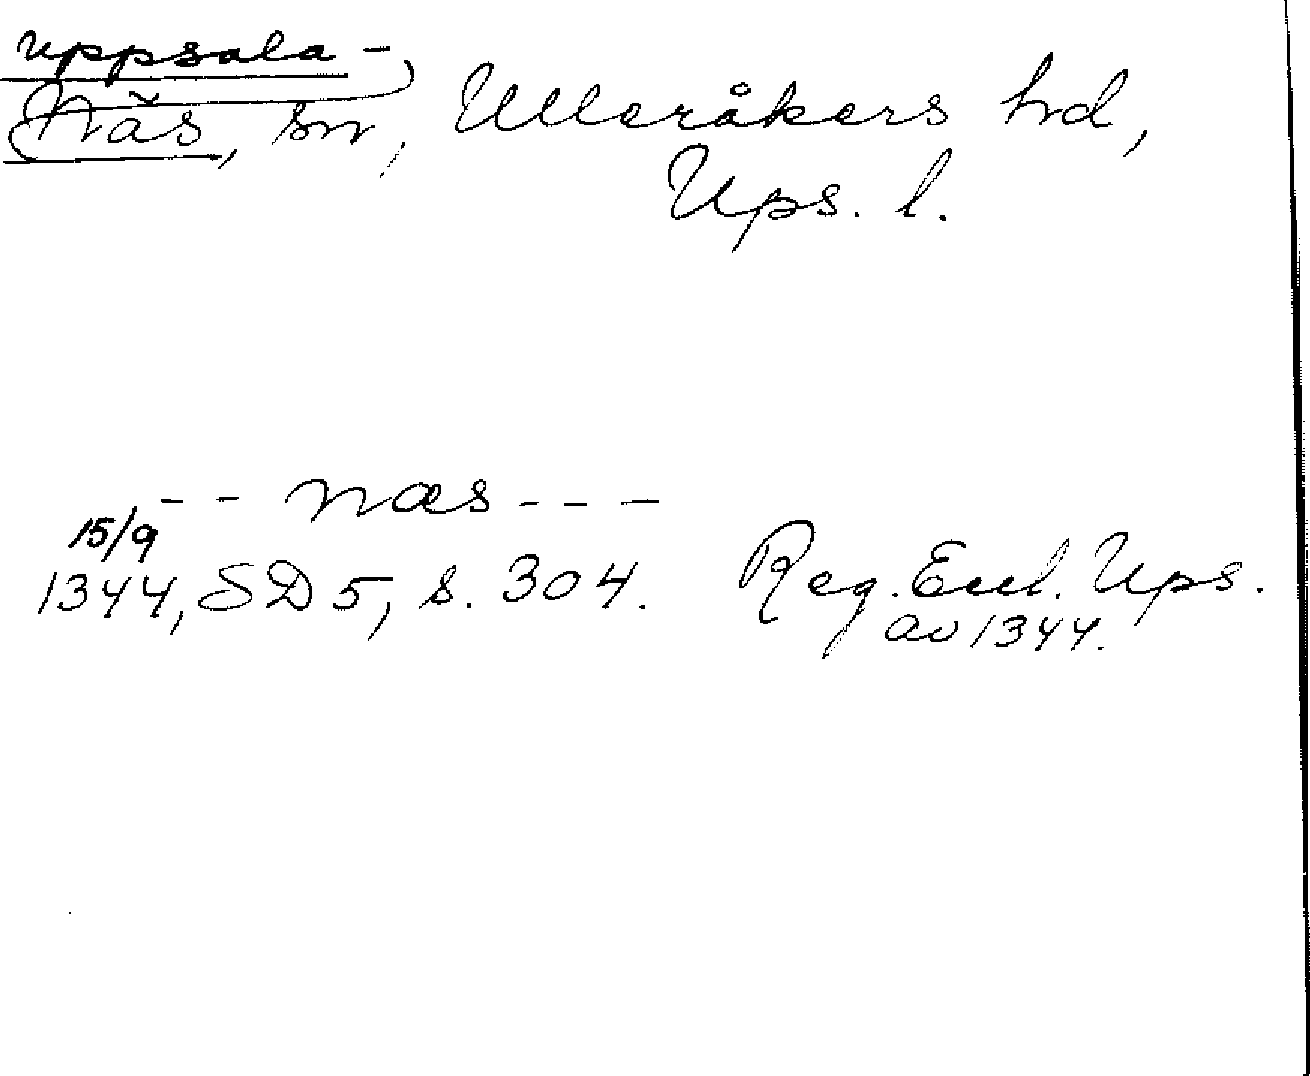 Uppsala-
Näs, sn, Ulleråkers hd,
Ups. l.
- - næs - - -
15/9
1344, SD 5, s. 304. Reg. Eccl. Ups.
av 1344.